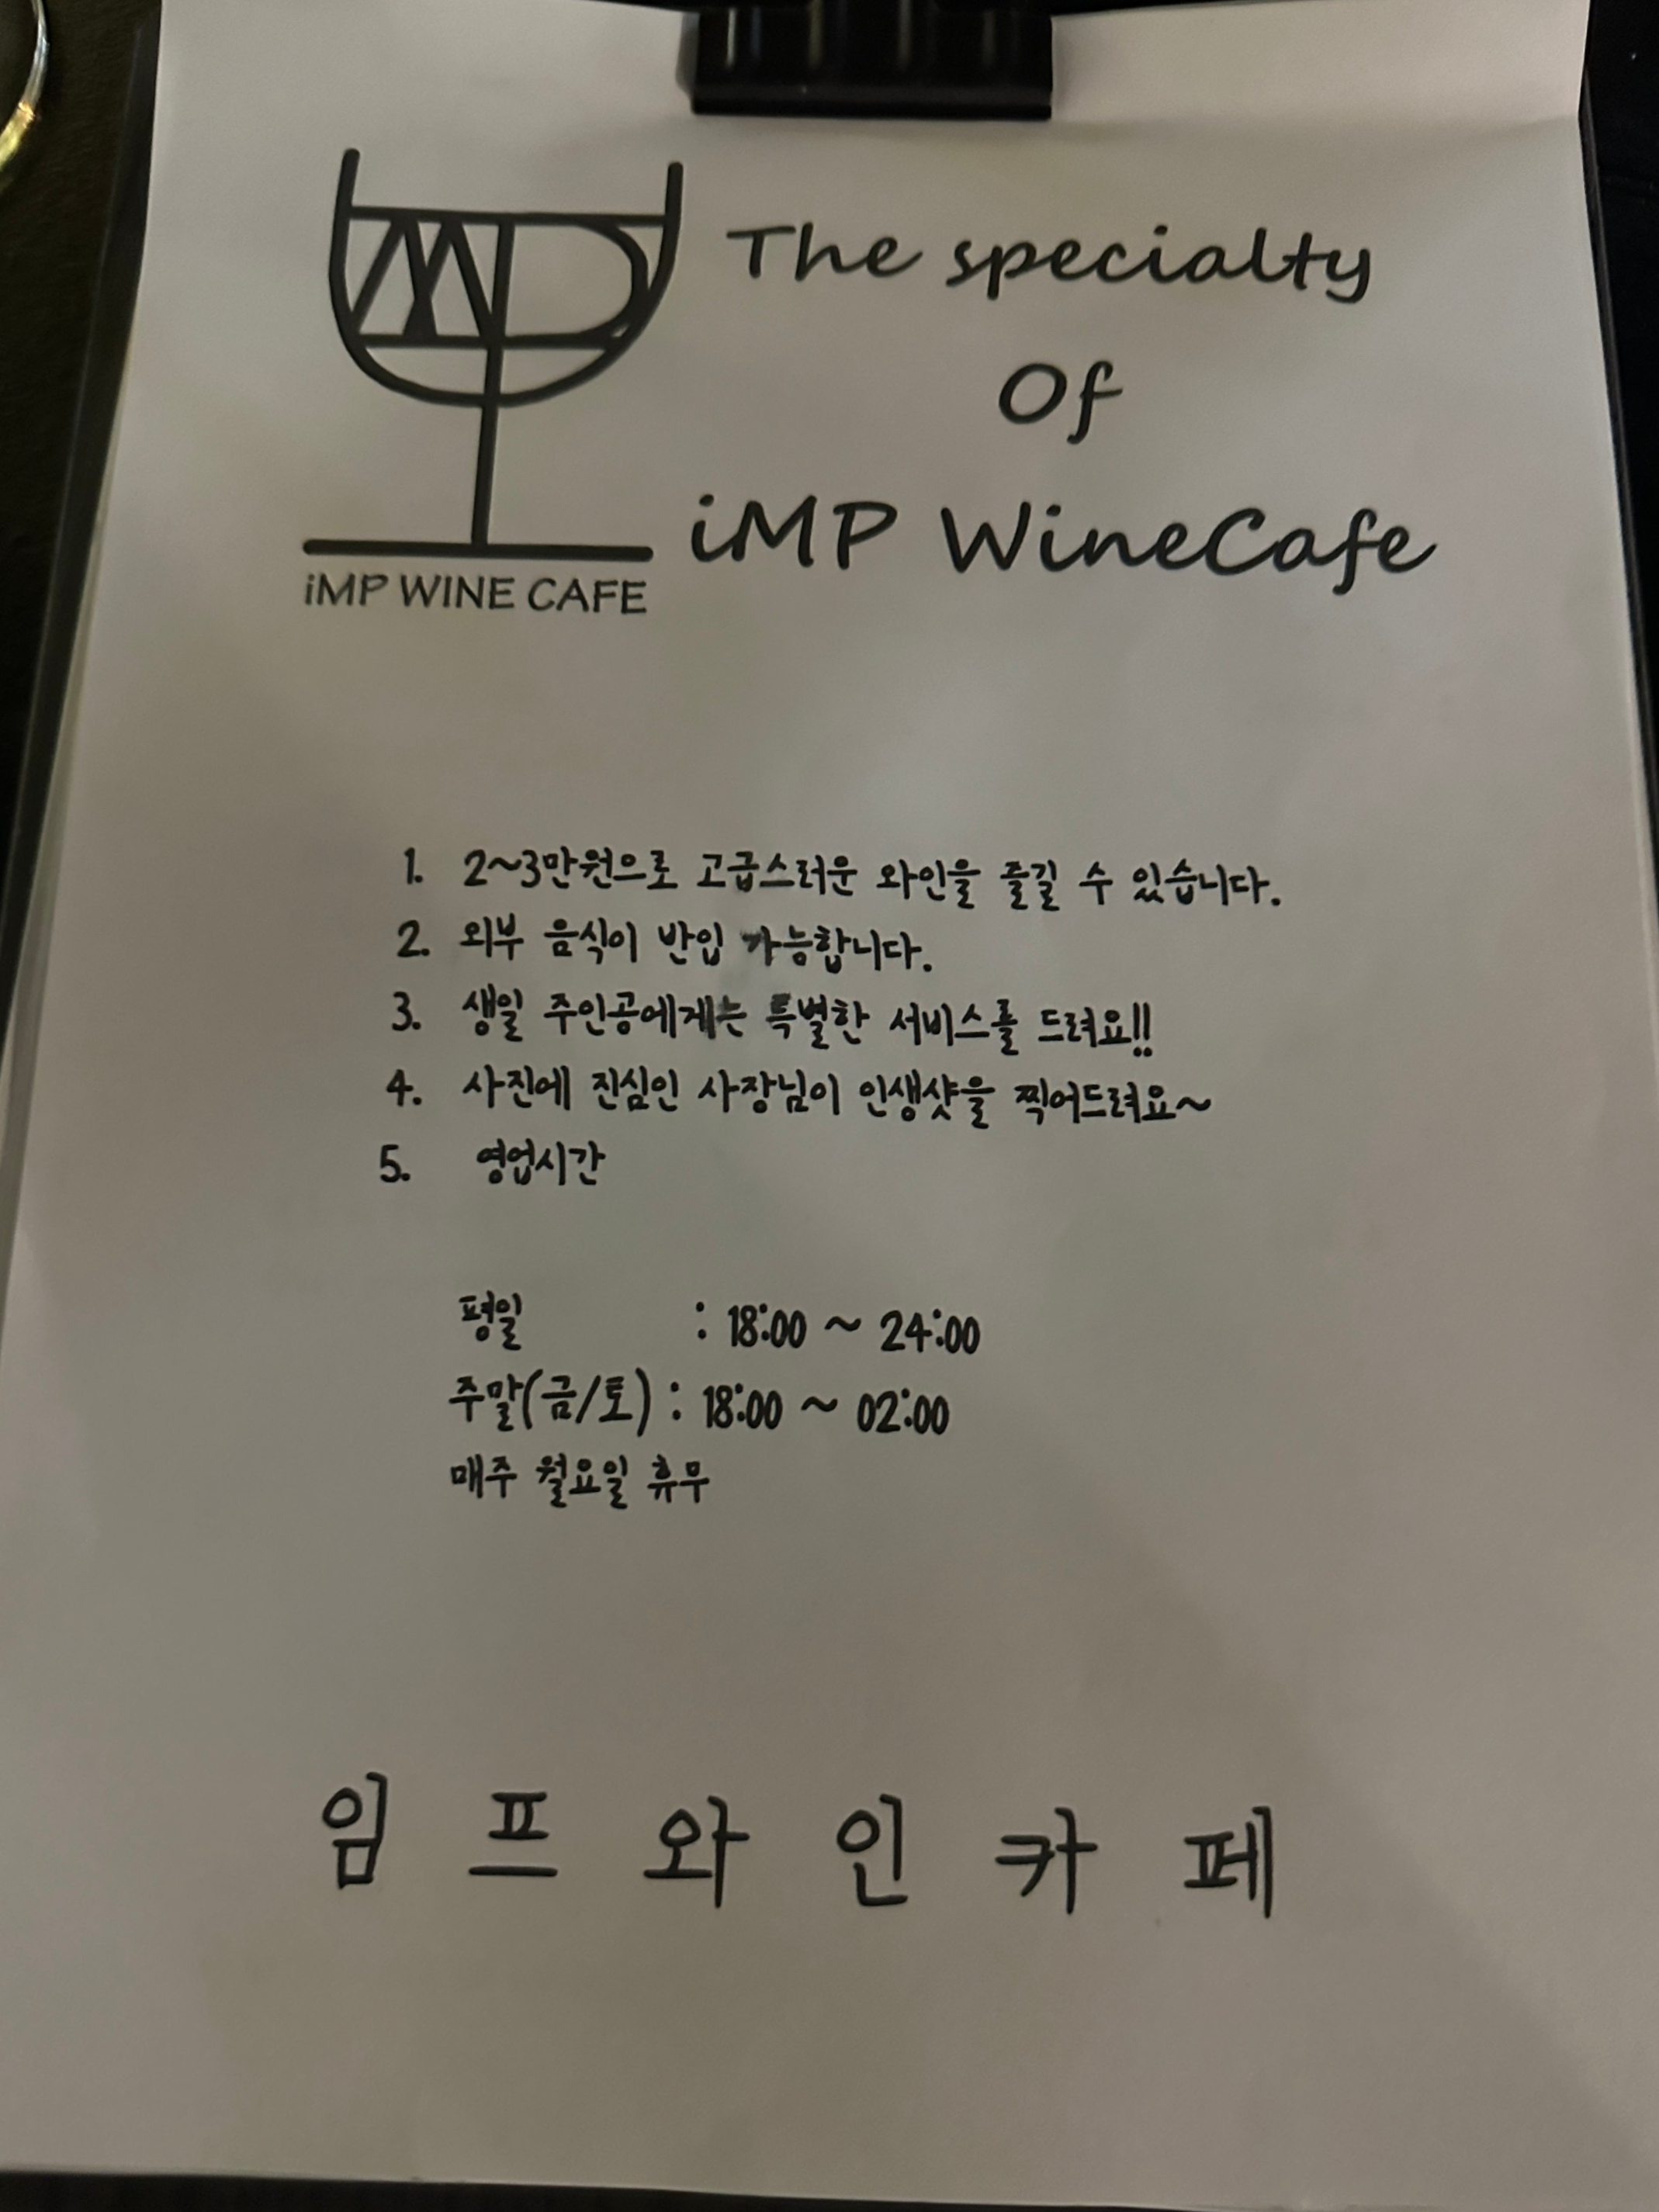 The specialty
Of
iMP WineCafe
iMP WINE CAFE
1. 2~3만원으로 고급스러운 와인을 즐길 수 있습니다.
2. 외부 음식이 반입 가능합니다.
3. 생일 주인공에게는 특별한 서비스를 드려요!!
4. 사진에 진심인 사장님이 인생샷을 찍어드려요~
5. 영업시간
평일 : 18:00 ~ 24:00
주말(금/토) : 18:00 ~ 02:00
매주 월요일 휴무
임 프 와 인 카 페